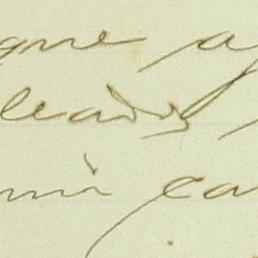 que a
leados
mi ca